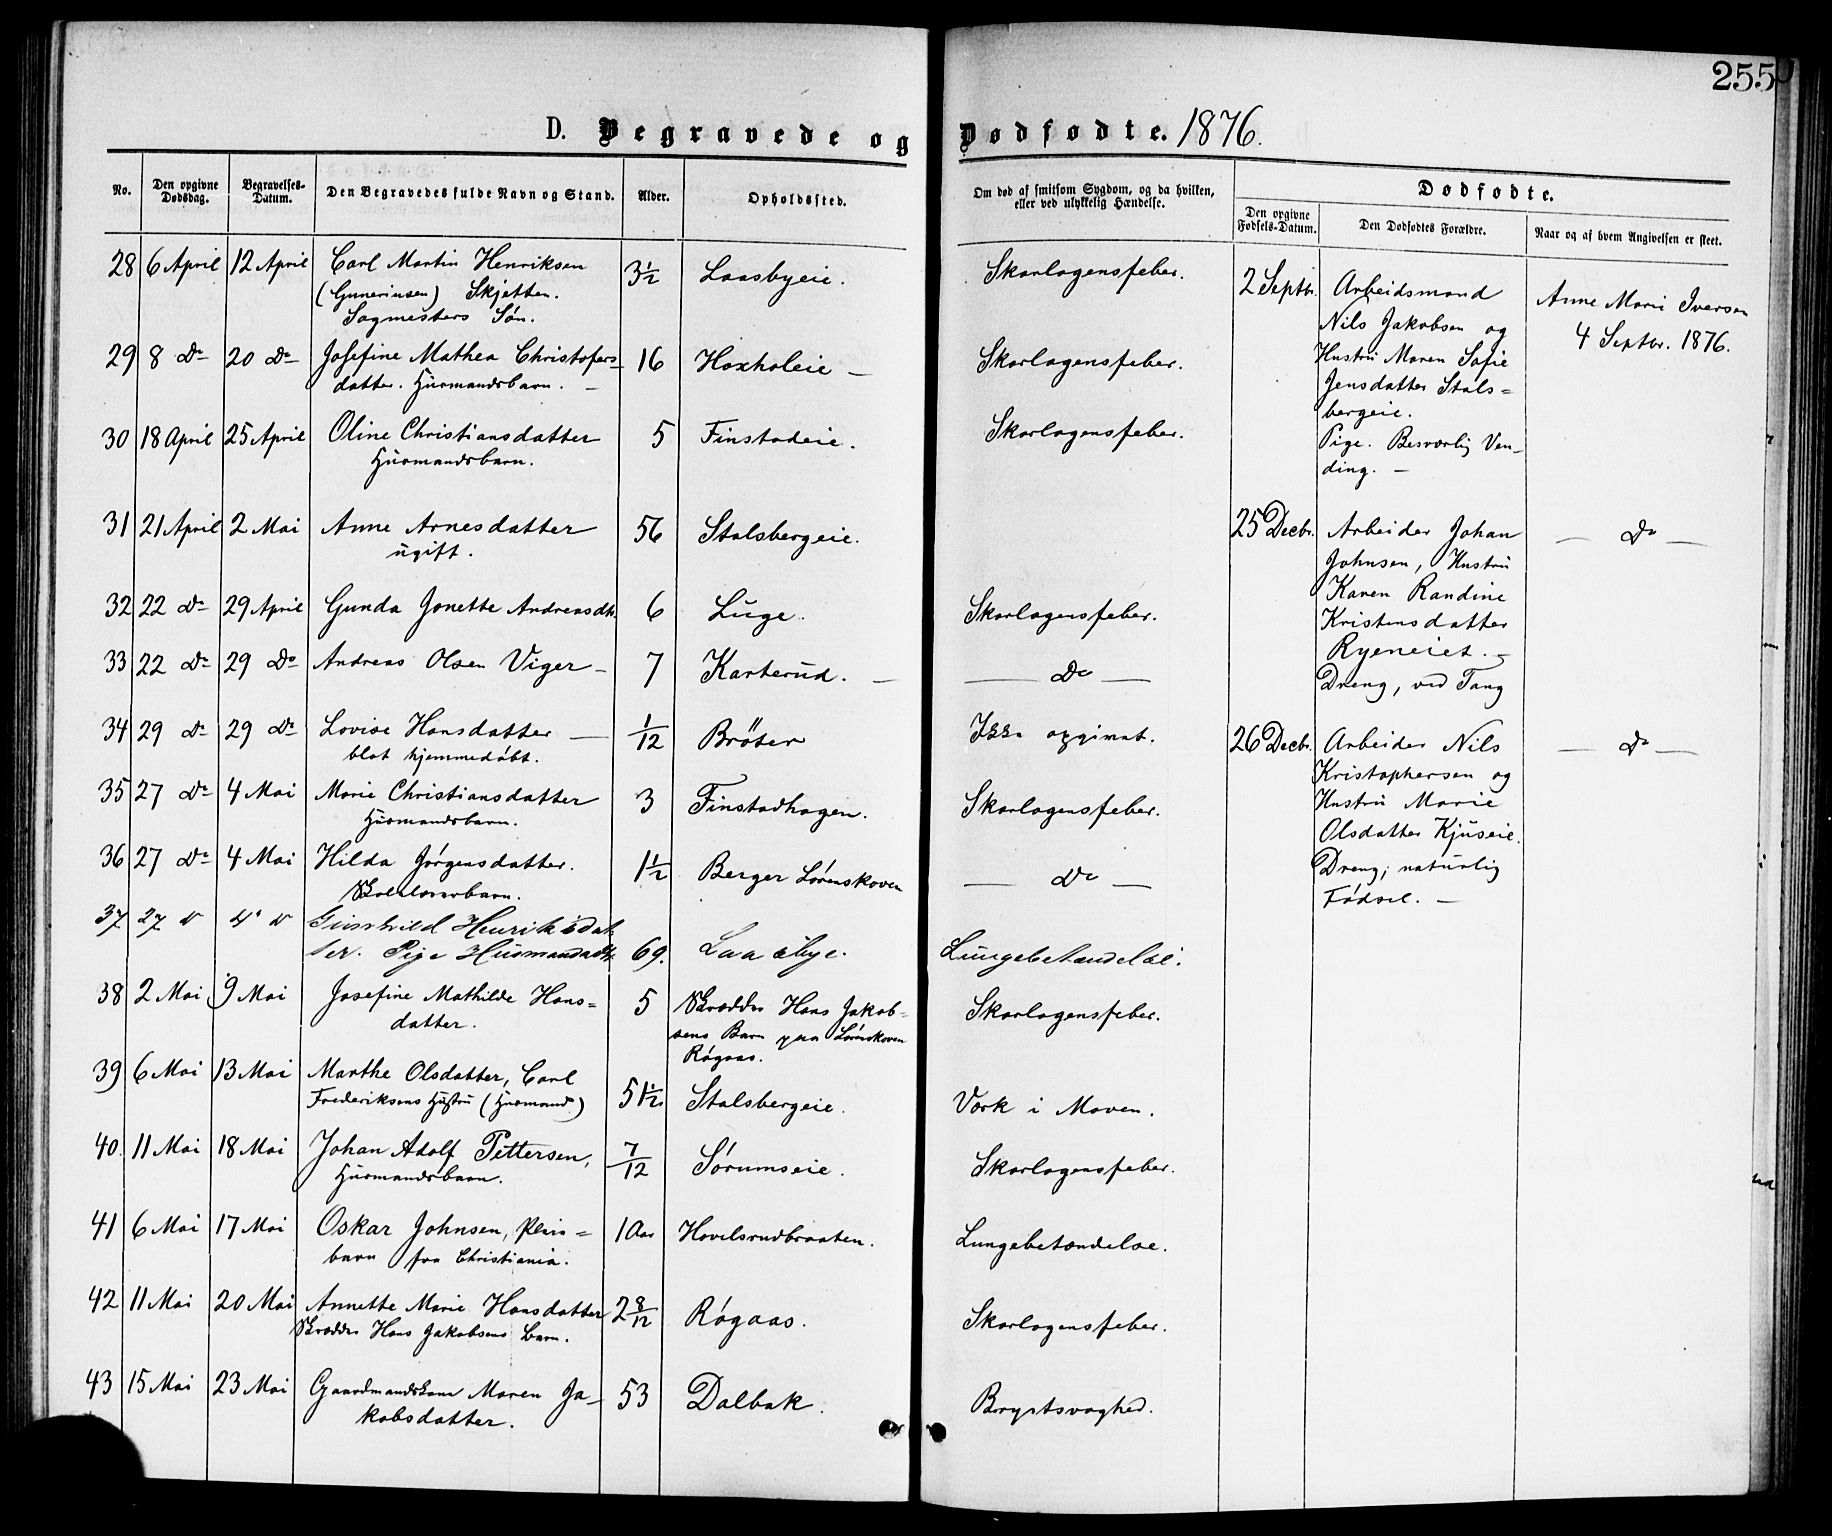 255
D. Begravede og Dødfødte. 1876.
No. Den opgivne Dødsdag. Begravelses-Datum. Den Begravedes fulde Navn og Stand. Alder. Opholdssted. Om død af smitsom Sygdom, og da hvilken, eller ved ulykkelig Hændelse.
Dødfødte.
Den opgivne Fødsels-Datum. Den Dødfødtes Forældre. Naar og af hvem Angivelsen er skeet.
28 6 April 12 April Carl Martin Henriksen 3½ Laasbyeie. Skarlagensfeber.
(Gunerinsen) Skjetten.
Sagmesters Søn.
29 8 do 20 do Josefine Mathea Christofers= 16 Hoxholeie — Skarlagensfeber.
datter. Husmandsbarn. —
30 18 April 25 April Oline Christiansdatter 5 Finstadeie. Skarlagensfeber.
Husmandsbarn.
31 21 April 2 Mai Anne Arnesdatter 56 Stalsbergeie.
ugift.
32 22 do 29 April Gunda Jonette Andreasdtr. 6 Luge. Skarlagensfeber.
33 22 do 29 do Andreas Olsen Viger — 7 Karterud. — — do —
34 29 do 29 do Lovise Hansdatter — 1/12 Bröter Ikke opgivet.
blot hjemmedøbt.
35 27 do 4 Mai Marie Christiansdatter 3 Finstadhagen. Skarlagensfeber.
Husmandsbarn.
36 27 do 4 Mai Hilda Jørgensdatter. 1½ Berger Lørenskoven — do —
Skolelærerbarn.
37 27 d 4 d Gunhild Henriksdat-
ter. Pige Husmandsdtr. 69. Laasbye. Lungebetændelse.
38 2 Mai 9 Mai Josefine Mathilde Hans= 5 Skrædder Hans Jakob= Skarlagensfeber.
datter. sens Barn paa Lørenskoven
Røgaas.
39 6 Mai 13 Mai Marthe Olsdatter, Carl
Frederiksens Hustru (Husmand) 51½ Stalsbergeie. Værk i Maven.
40. 11 Mai 18 Mai Johan Adolf Pettersen, 7/12 Sørumseie. Skarlagensfeber.
Husmandsbarn.
41 6 Mai 17 Mai Oskar Johnsen, Pleie= 1 Aar Hovelsrudbraaten. Lungebetændelse.
barn fra Christiania.
42 11 Mai 20 Mai Annette Marie Hansdatter 2 8/12 Røgaas. Skarlagensfeber.
Skrædder Hans Jakobsens Barn.
43 15 Mai 23 Mai Gaardmandskone Maren Ja- 53 Dalbak. Brystsvaghed.
kobsdatter.
2 Septbr. Arbeidsmand
Nils Jakobsen og
Hustru Maren Sofie
Jensdatter Stals=
bergeie.
Pige. Besværlig Ven-
ding. —
Anne Marie Iversen
4 Septbr. 1876.
25 Decbr. Arbeider Johan — do —
Johnsen, Hustru
Karen Randine
Kristensdatter
Ryeneiet. —
Dreng, ved Tang
26 Decbr. Arbeider Nils — do —
Kristophersen og
Hustru Marie
Olsdatter Kjuseie.
Dreng; naturlig
Fødsel. —